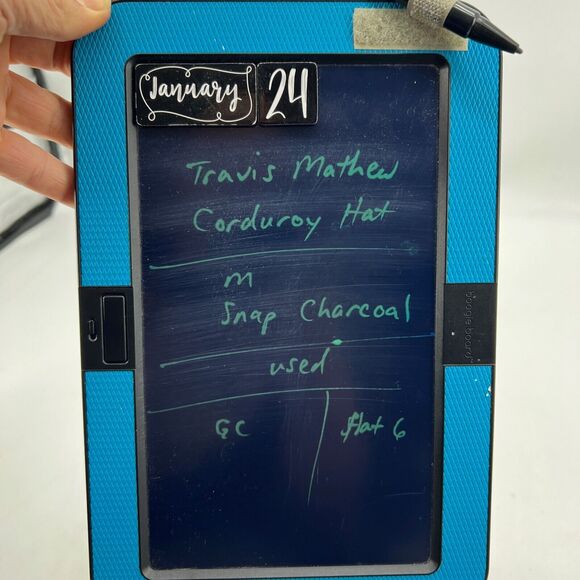 January 24
Travis Mathew
Corduroy Hat
m
Snap Charcoal
used
GC
flat 6
boogie board